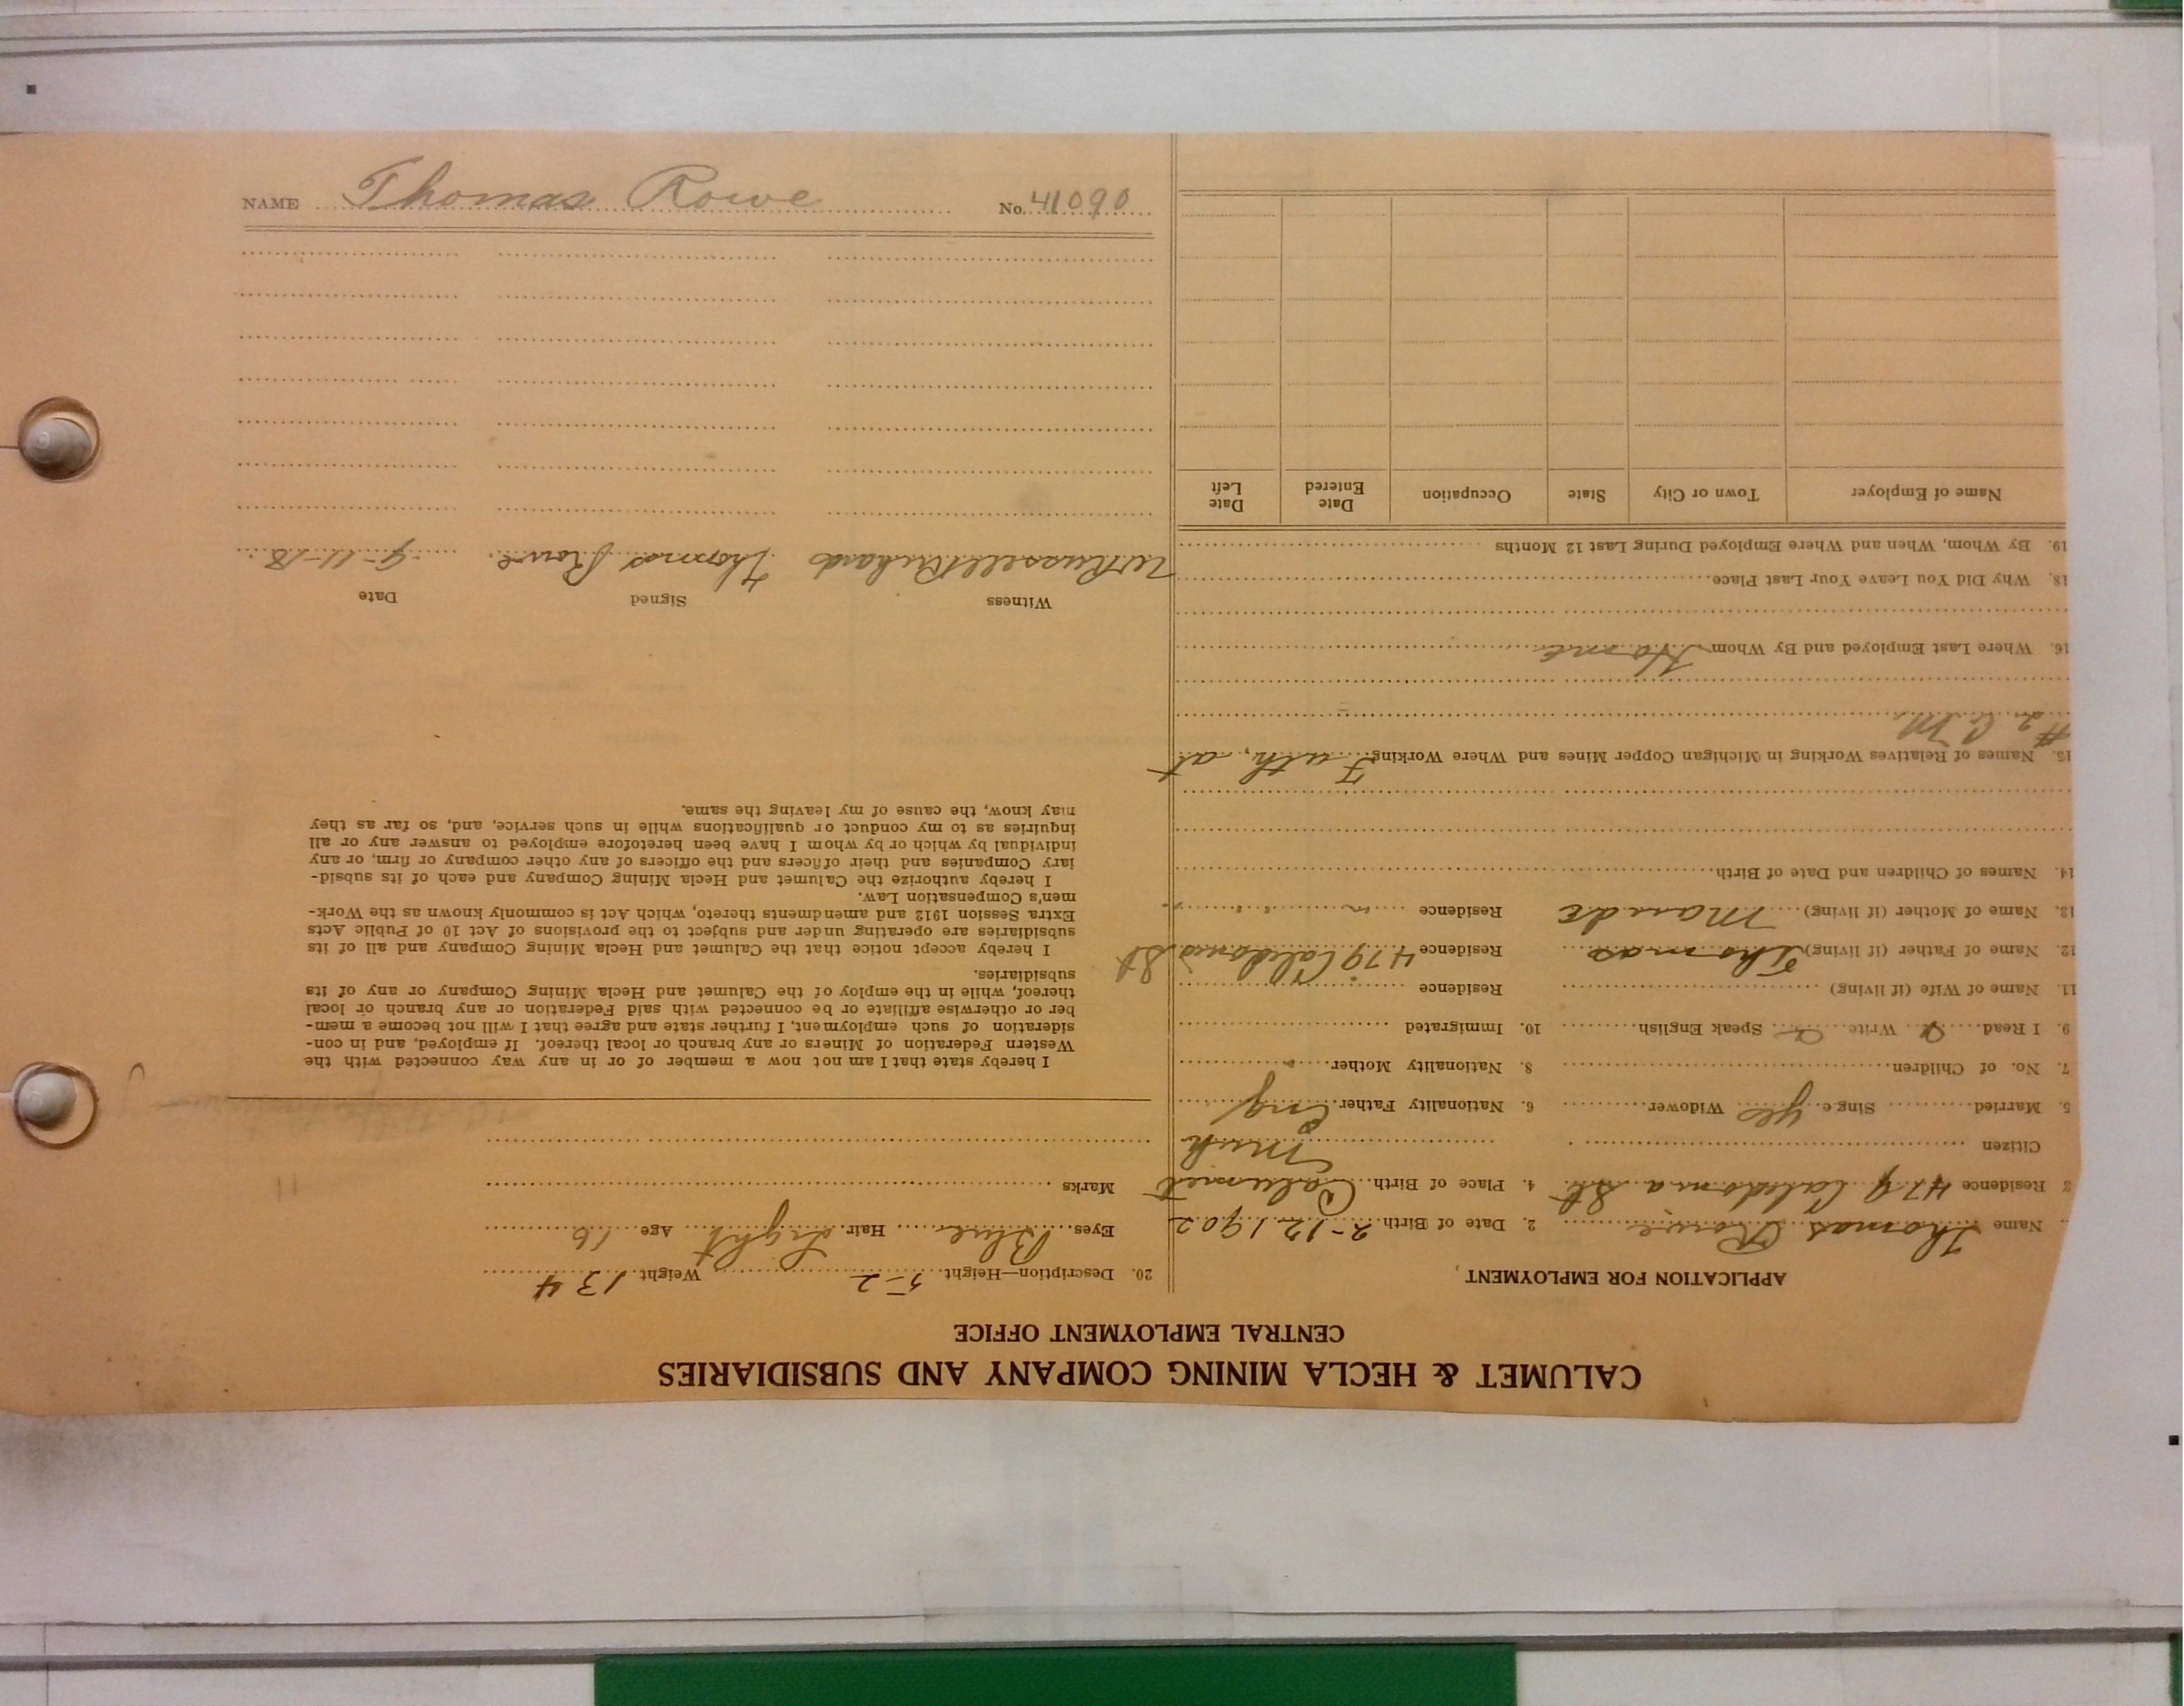 CALUMET & HECLA MINING COMPANY AND SUBSIDIARIES
CENTRAL EMPLOYMENT OFFICE
APPLICATION FOR EMPLOYMENT
Name Thomas Rowe 2. Date of Birth 2-12 1902
3 Residence 479 Caledonia St. 4. Place of Birth Calumet
Mich
Citizen
5. Married Sing e yes Widower 6. Nationality Father Eng
7. No. of Children 8. Nationality Mother "
9. I Read Write Speak English 10. Immigrated
11. Name of Wife (if living) Residence
12. Name of Father (if living) Thomas Residence 479 Caledonia St
13. Name of Mother (if living) Maude Residence " " "
14. Names of Children and Date of Birth
15. Names of Relatives Working in Michigan Copper Mines and Where Working Fath, at
#2 C M.
16. Where Last Employed and By Whom
18. Why Did You Leave Your Last Place
19. By Whom, When and Where Employed During Last 12 Months
Name of Employer Town or City State Occupation Date Entered Date Left
20. Description—Height 5-2 Weight 134
Eyes Blue Hair Light Age 16
Marks
11
I hereby state that I am not now a member of or in any way connected with the
Western Federation of Miners or any branch or local thereof. If employed, and in con-
sideration of such employment, I further state and agree that I will not become a mem-
ber or otherwise affiliate or be connected with said Federation or any branch or local
thereof, while in the employ of the Calumet and Hecla Mining Company or any of its
subsidiaries.
I hereby accept notice that the Calumet and Hecla Mining Company and all of its
subsidiaries are operating under and subject to the provisions of Act 10 of Public Acts
Extra Session 1912 and amendments thereto, which Act is commonly known as the Work-
men's Compensation Law.
I hereby authorize the Calumet and Hecla Mining Company and each of its subsid-
iary Companies and their officers and the officers of any other company or firm, or any
individual by which or by whom I have been heretofore employed to answer any or all
inquiries as to my conduct or qualifications while in such service, and, so far as they
may know, the cause of my leaving the same.
Witness Signed Date
W Russell Richards Thomas Rowe. 9-11-18
NAME Thomas Rowe No. 41090